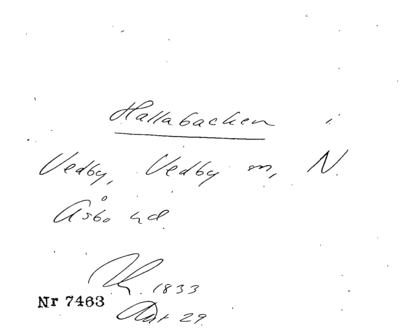 Hallabacken i
Vedby, Vedby sn, N.
Åsbo hd.
1833
Nr 7463
29